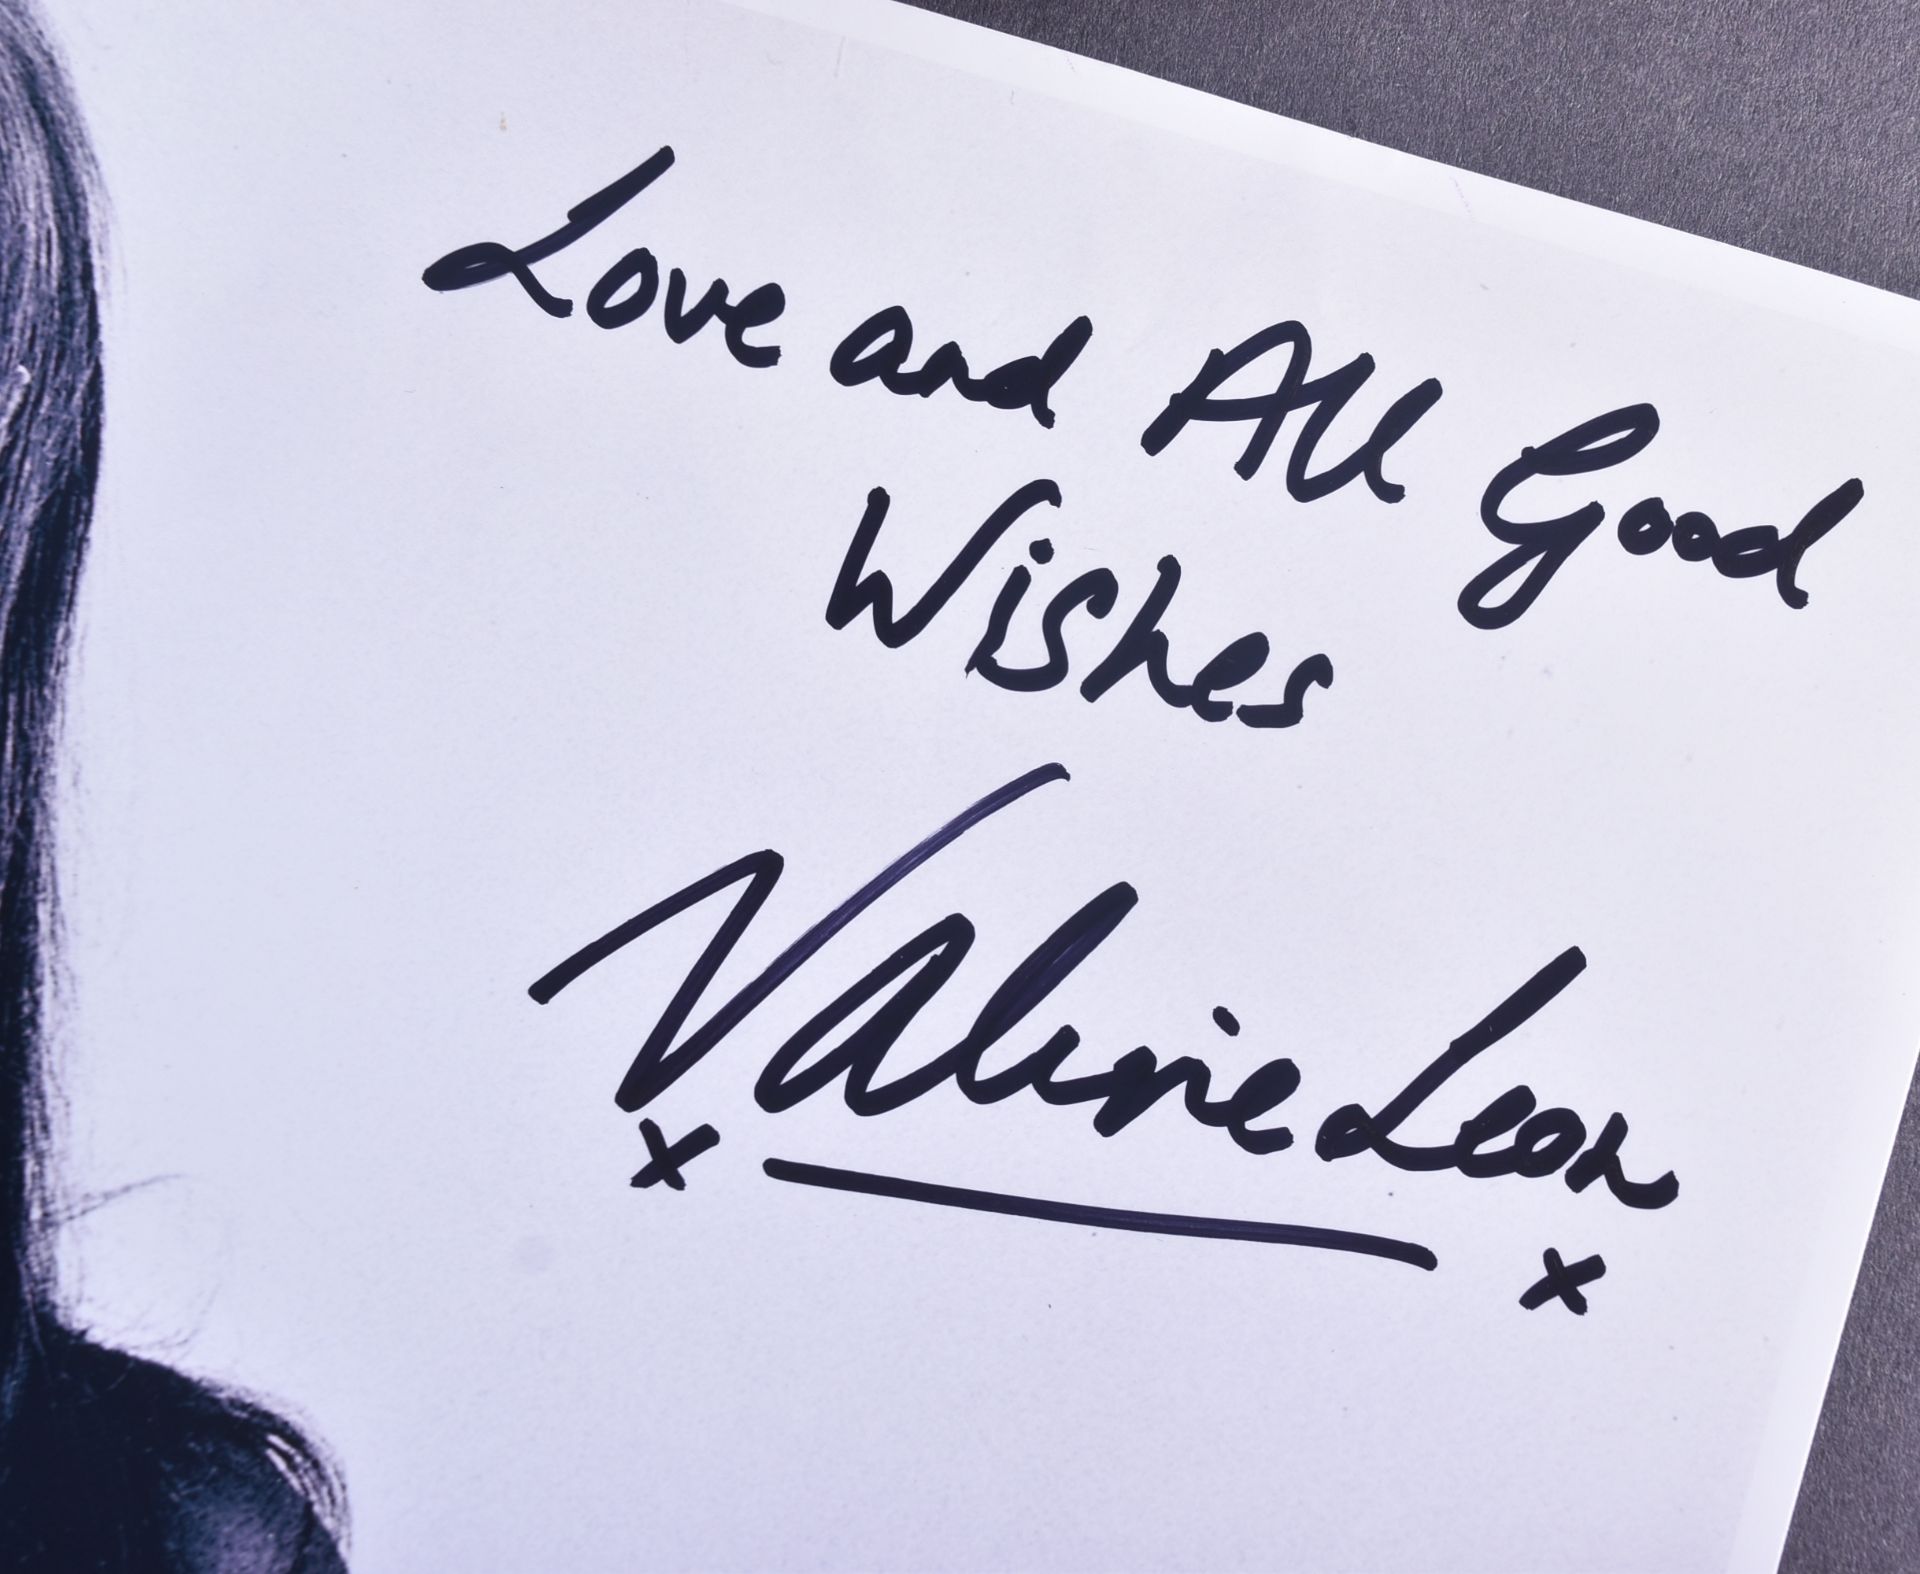 Love and All Good
Wishes
Valerie Leon
x x